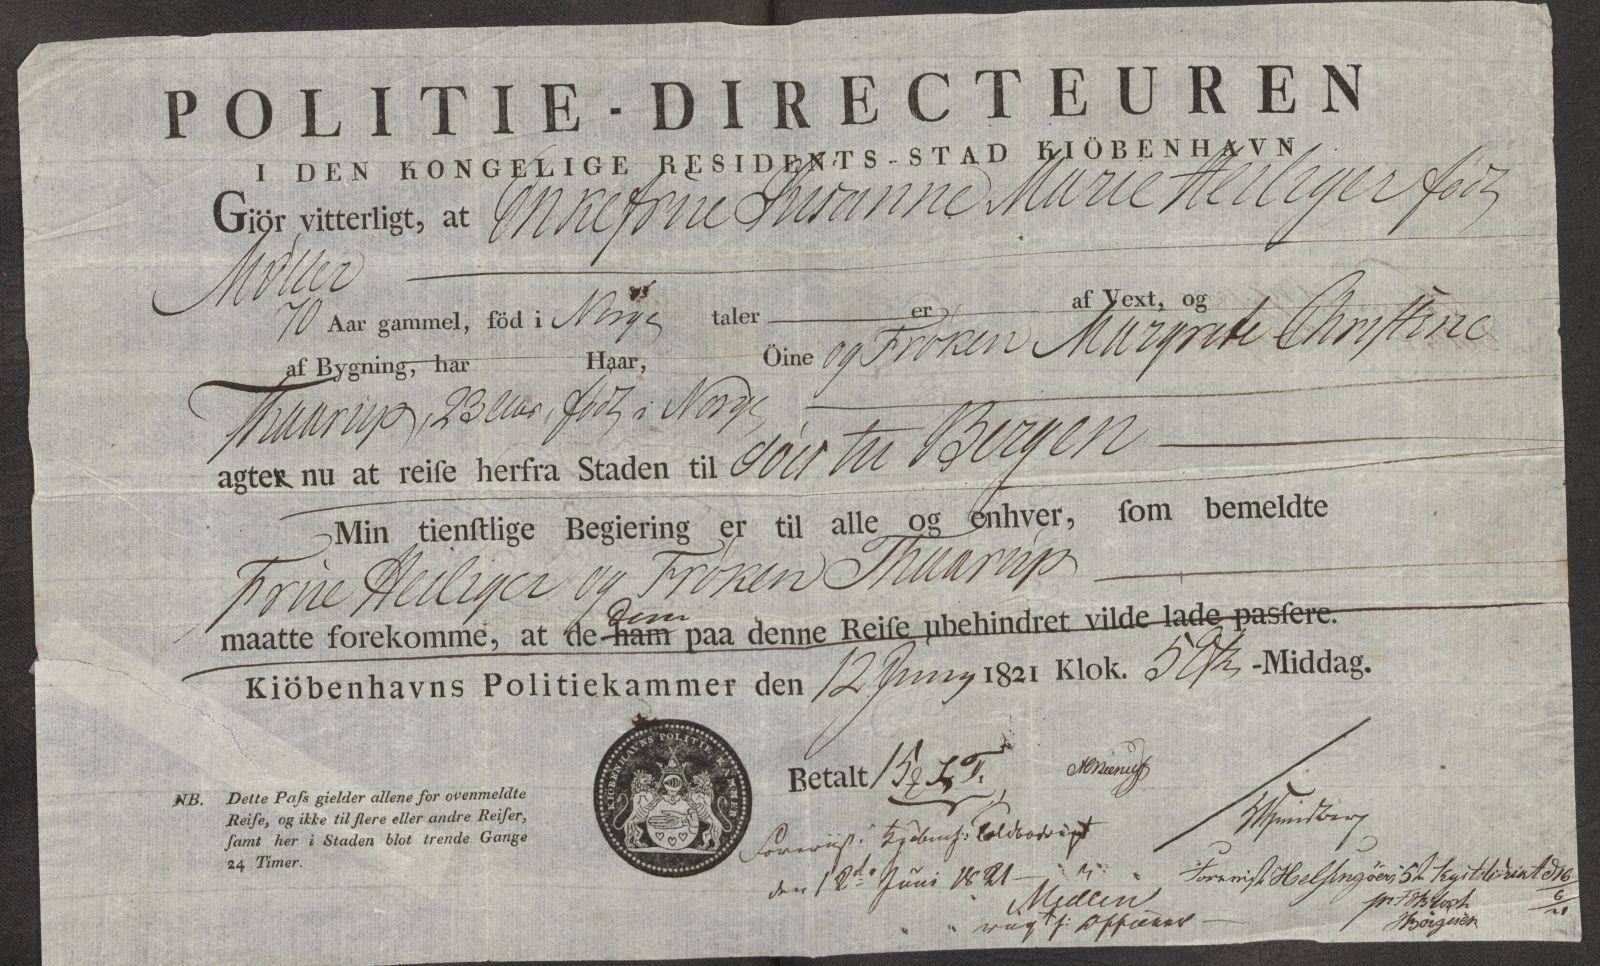 POLITIE-DIRECTEUREN
I DEN KONGELIGE RESIDENTS-STAD KIÖBENHAVN
Giör vitterligt, at Enkefrue Susanne Marie Heiliger föd
Möller
70 Aar gammel, föd i Norge taler er af Vext, og
af Bygning, har Haar, Öine og Fröken Margrete Christine
Thaarup, 23 Aar, föd i Norge
agter nu at reiſe herfra Staden til Söes til Bergen
Min tienſtlige Begiering er til alle og enhver, ſom bemeldte
Frue Heiliger og Fröken Thaarup
dem
maatte forekomme, at de ham paa denne Reiſe ubehindret vilde lade paſſere.
Kiöbenhavns Politiekammer den 12 Juny 1821 Klok. 5 -Middag.
KIÖBENHAVNS POLITIE KAMMER
Betalt 15
NB. Dette Paſs gielder allene for ovenmeldte
Reiſe, og ikke til flere eller andre Reiſer,
ſamt her i Staden blot trende Gange
24 Timer.
den 12 Juni 1821
Helsingöers